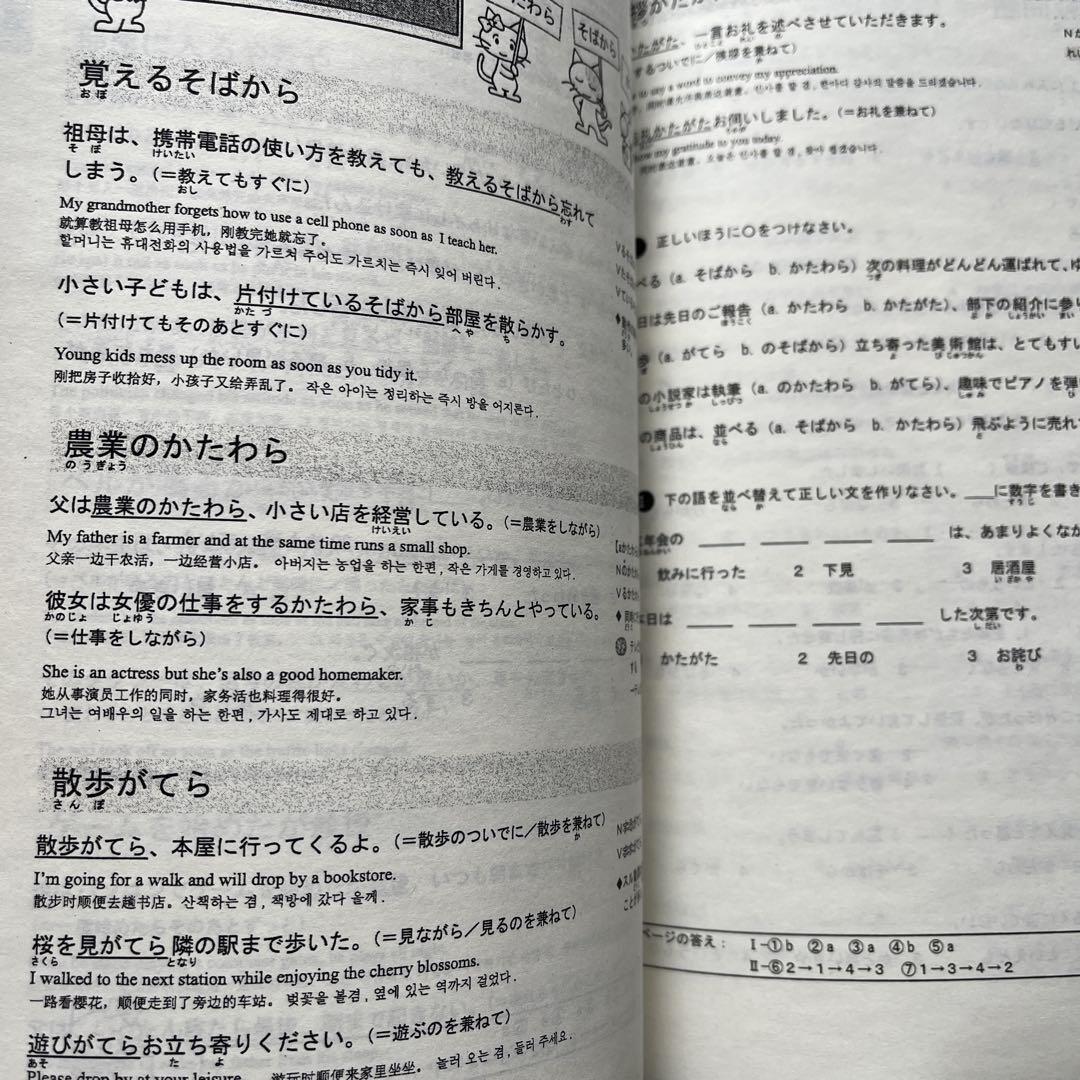 たわら
そばから
覚えるそばから
おぼ
祖母は、携帯電話の使い方を教えても、教えるそばから忘れて
そぼ けいたい わす
しまう。(＝教えてもすぐに)
おし
My grandmother forgets how to use a cell phone as soon as I teach her.
就算教祖母怎么用手机，刚教完她就忘了。
할머니는 휴대전화의 사용법을 가르쳐 주어도 가르치는 즉시 잊어 버린다.
小さい子どもは、片付けているそばから部屋を散らかす。
かたづ へや ち
(＝片付けてもそのあとすぐに)
Young kids mess up the room as soon as you tidy it.
刚把房子收拾好，小孩子又给弄乱了。 작은 아이는 정리하는 즉시 방을 어지른다.
農業のかたわら
のうぎょう
父は農業のかたわら、小さい店を経営している。(＝農業をしながら)
けいえい
My father is a farmer and at the same time runs a small shop.
父亲一边干农活，一边经营小店。 아버지는 농업을 하는 한편, 작은 가게를 경영하고 있다.
彼女は女優の仕事をするかたわら、家事もきちんとやっている。
かのじょ じょゆう かじ
(＝仕事をしながら)
She is an actress but she's also a good homemaker.
她从事演员工作的同时，家务活也料理得很好。
그녀는 여배우의 일을 하는 한편, 가사도 제대로 하고 있다.
散歩がてら
さんぽ
散歩がてら、本屋に行ってくるよ。(＝散歩のついでに／散歩を兼ねて)
か
I'm going for a walk and will drop by a bookstore.
散步时顺便去趟书店。 산책하는 겸, 책방에 갔다 올께.
桜を見がてら隣の駅まで歩いた。(＝見ながら／見るのを兼ねて)
さくら となり
I walked to the next station while enjoying the cherry blossoms.
一路看樱花，顺便走到了旁边的车站。 벚꽃을 볼겸, 옆에 있는 역까지 걸었다.
遊びがてらお立ち寄りください。(＝遊ぶのを兼ねて)
あそ た よ
Please drop by at your leisure. 游玩时顺便来家里坐坐。 놀러 오는 겸, 들러 주세요.
かたがた、一言お礼を述べさせていただきます。
するついでに／挨拶を兼ねて)
say a word to convey my appreciation.
かたがたお伺いしました。(＝お礼を兼ねて)
my gratitude to you today.
正しいほうに○をつけなさい。
べる (a. そばから b. かたわら) 次の料理がどんどん運ばれて、ゆ
つぎ
日は先日のご報告 (a. かたわら b. かたがた)、部下の紹介に参り
ほうこく ぶか しょうかい まい
歩 (a. がてら b. のそばから) 立ち寄った美術館は、とてもすい
よ びじゅつかん
の小説家は執筆 (a. のかたわら b. がてら)、趣味でピアノを弾
しょうせつか しっぴつ しゅみ ひ
の商品は、並べる (a. そばから b. かたわら) 飛ぶように売れて
しょうひん なら と
下の語を並べ替えて正しい文を作りなさい。___に数字を書き
なら か すうじ
年会の ___ ___ ___ ___ は、あまりよくなか
飲みに行った 2 下見 3 居酒屋
いざかや
日は ___ ___ ___ ___ した次第です。
しだい
かたがた 2 先日の 3 お詫び
わ
ページの答え： Ⅰ-①b ②a ③a ④b ⑤a
Ⅱ-⑥2→1→4→3 ⑦1→3→4→2